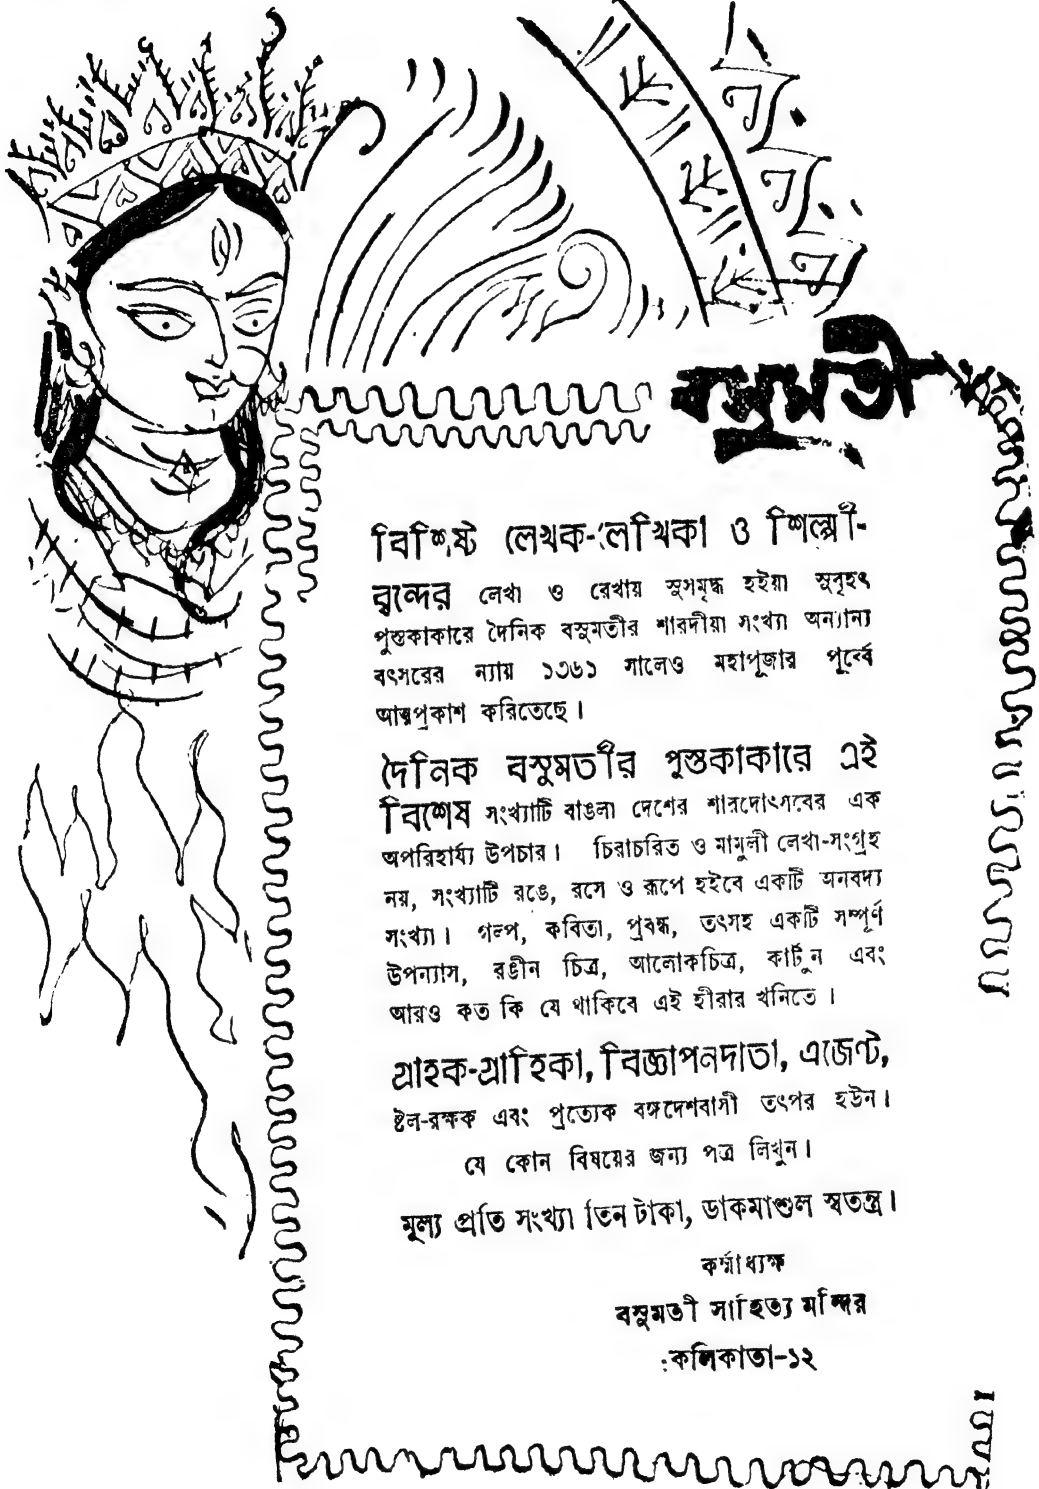 বসুমতী
বিশিষ্ট লেখক-লেখিকা ও শিল্পী-
বৃন্দের লেখা ও রেখায় সুসমৃদ্ধ হইয়া সুবৃহৎ
পুস্তকাকারে দৈনিক বসুমতীর শারদীয়া সংখ্যা অন্যান্য
বৎসরের ন্যায় ১৩৬১ সালেও মহাপূজার পূর্ব্বে
আত্মপ্রকাশ করিতেছে।
দৈনিক বসুমতীর পুস্তকাকারে এই
বিশেষ সংখ্যাটি বাঙলা দেশের শারদোৎসবের এক
অপরিহার্য্য উপচার। চিরাচরিত ও মামুলী লেখা-সংগ্রহ
নয়, সংখ্যাটি রঙে, রসে ও রূপে হইবে একটি অনবদ্য
সংখ্যা। গল্প, কবিতা, প্রবন্ধ, তৎসহ একটি সম্পূর্ণ
উপন্যাস, রঙীন চিত্র, আলোকচিত্র, কার্টুন এবং
আরও কত কি যে থাকিবে এই হীরার খনিতে।
গ্রাহক-গ্রাহিকা, বিজ্ঞাপনদাতা, এজেণ্ট,
ষ্টল-রক্ষক এবং প্রত্যেক বঙ্গদেশবাসী তৎপর হউন।
যে কোন বিষয়ের জন্য পত্র লিখুন।
মূল্য প্রতি সংখ্যা তিন টাকা, ডাকমাশুল স্বতন্ত্র।
কর্ম্মাধ্যক্ষ
বসুমতী সাহিত্য মন্দির
কলিকাতা-১২